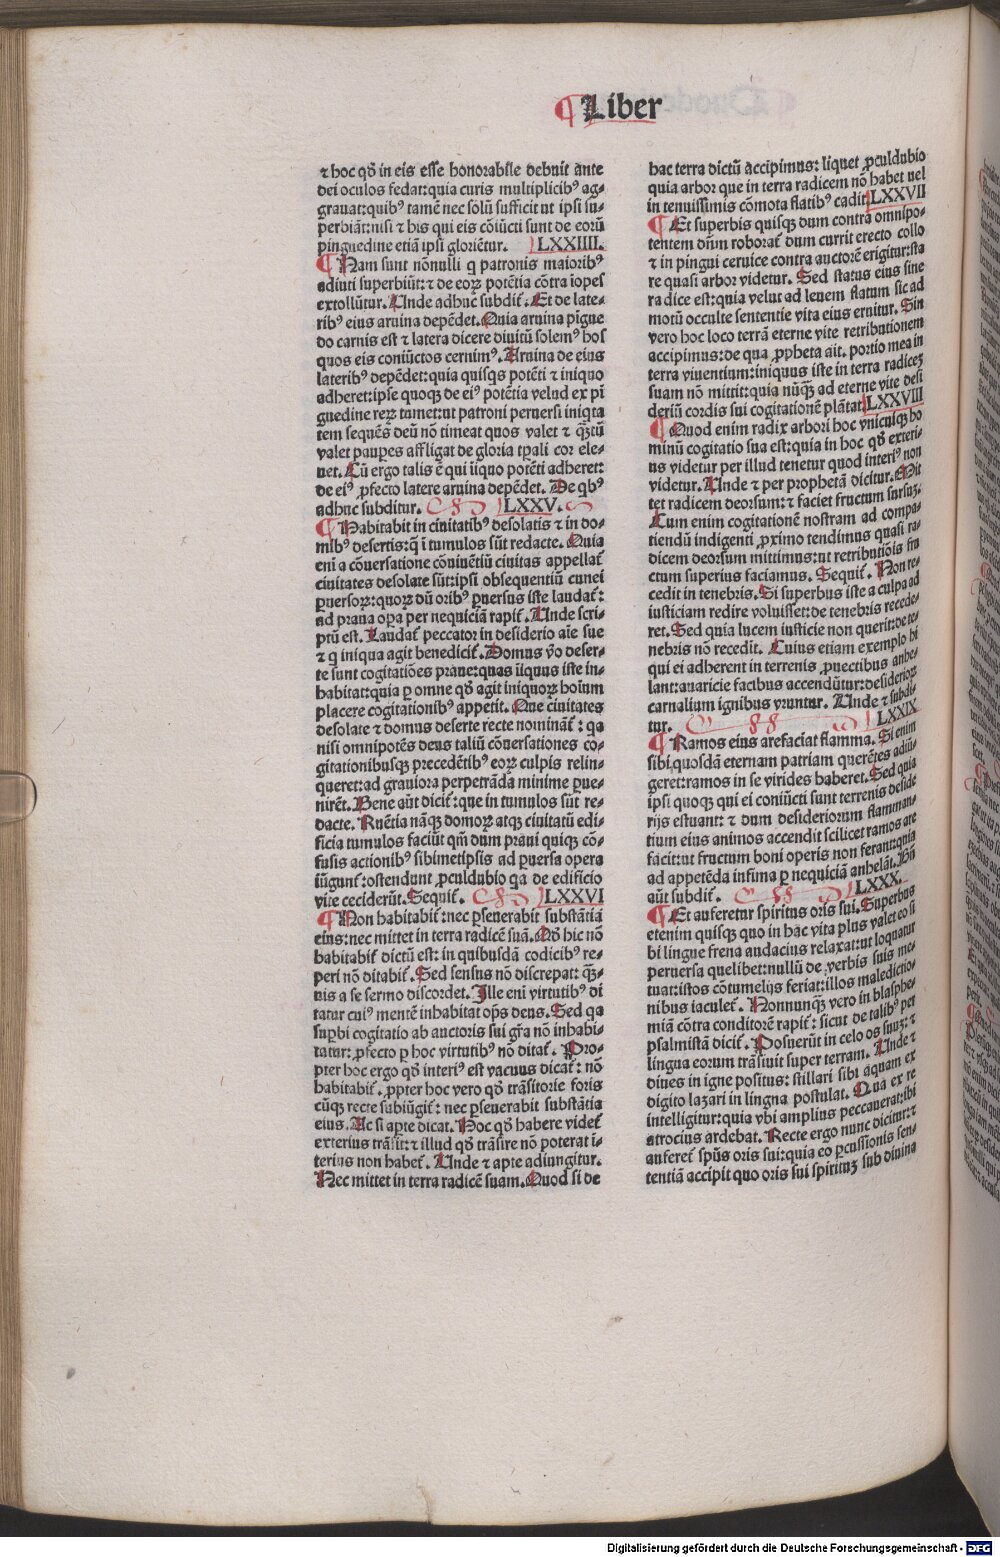 ¶ Liber
⁊ hoc qꝫ in eis esse honorabile debuit ante
dei oculos fedat: quia curis multiplicibꝰ ag-
grauat: quibꝰ tamē nec solū sufficit ut ipsi su-
perbiāt: nisi ⁊ his qui eis cōiūcti sunt de eorū
pinguedine etiā ipsi gloriētur. LXXIIII.
¶ Nam sunt nōnulli q patronis maioribꝰ
adiuti superbiūt: ⁊ de eoꝝ potētia cōtra īopes
extollūtur. Unde adhuc subdit̄. Et de late-
ribꝰ eius aruina depēdet. Quia aruina pīgue
do carnis est ⁊ latera dicere diuitū solemꝰ hos
quos eis coniūctos cernimꝰ. Aruina de eius
lateribꝰ depēdet: quia quisqs potēti ⁊ iniquo
adheret: ipse quoqꝫ de eiꝰ potētia velud ex pī
guedine reꝝ tumet: ut patroni peruersi iniqta
tem sequēs deū nō timeat quos valet ⁊ qꝫtū
valet pauꝑes affligat de gloria tꝑali cor ele-
uet. Cū ergo talis ē qui iīquo potēti adheret:
de eiꝰ ꝓfecto latere aruina depēdet. De qbꝰ
adhuc subditur. LXXV.
¶ Habitabit in ciuitatibꝰ desolatis ⁊ in do-
mibꝰ desertis: q̄ ī tumulos sūt redacte. Quia
enī a cōuersatione cōuiuētiū ciuitas appellat̄
ciuitates desolate sūt: ipsi obsequentiū cunei
ꝑuersoꝝ: quoꝝ dū oribꝰ ꝑuersus iste laudat̄:
ad praua oꝑa per nequiciā rapit̄. Unde scri-
ptū est. Laudat̄ peccator in desiderio aīe sue
⁊ q iniqua agit benedicit̄. Domus v̄o deser-
te sunt cogitatiōes praue: quas iīquus iste in-
habitat: quia ꝑ omne qꝫ agit iniquoꝝ hoīum
placere cogitationibꝰ appetit. Que ciuitates
desolate ⁊ domus deserte recte nominat̄: qa
nisi omnipotēs deus taliū cōuersationes co-
gitationibusqꝫ precedētibꝰ eoꝝ culpis relin-
queret: ad grauiora perpetrāda minime ꝑue-
nirēt. Bene aūt dicit̄: que in tumulos sūt re-
dacte. Ruētia nāqꝫ domoꝝ atqꝫ ciuitatū edi-
ficia tumulos faciūt qm̄ dum praui quiqꝫ cō-
fusis actionibꝰ sibimetipsis ad ꝑuersa opera
iūgunt̄: ostendunt ꝓculdubio qa de edificio
vite ceciderūt. Sequit̄. LXXVI
¶ Non habitabit̄: nec ꝑseuerabit substātia
eius: nec mittet in terra radicē suā. Qꝫ hic nō
habitabit̄ dictū est: in quibusdā codicibꝰ re-
peri nō ditabit̄. Sed sensus nō discrepat: qꝫ-
uis a se sermo discordet. Ille enī virtutibꝰ di
tatur cuiꝰ mentē inhabitat op̄s deus. Sed qa
suꝑbi cogitatio ab auctoris sui gr̄a nō inhabi-
tatur: ꝓfecto ꝑ hoc virtutibꝰ nō ditat̄. Pro-
pter hoc ergo qꝫ interiꝰ est vacuus dicat̄: nō
habitabit̄. ꝓpter hoc vero qꝫ trāsitorie foris
cūqꝫ recte subiūgit̄: nec ꝑseuerabit substātia
eius. Ac si aꝑte dicat. Hoc qꝫ habere videt̄
exterius trāsit: ⁊ illud qꝫ trāsire nō poterat i-
terius non habet̄. Unde ⁊ apte adiungitur.
Nec mittet in terra radicē suam. Quod si de
hac terra dictū accipimus: liquet ꝓculdubio
quia arbor que in terra radicem nō habet uel
in tenuissimis cōmota flatibꝰ cadit. LXXVII
¶ Et superbis quisqꝫ dum contra omnipo-
tentem dn̄m roborat̄ dum currit erecto collo
⁊ in pingui ceruice contra auctorē erigitur: sta
re quasi arbor videtur. Sed status eius sine
radice est: quia velut ad leuem flatum sic ad
motū occulte sententie vita eius eruitur. Sin
vero hoc loco terrā eterne vite retributionem
accipimus: de qua ꝓpheta ait. portio mea in
terra viuentium: iniquus iste in terra radiceꝫ
suam nō mittit: quia nūqꝫ ad eterne vite desi
deriū cordis sui cogitationē plātat. LXXVIII
¶ Quod enim radix arbori hoc vnicuiqꝫ ho
minū cogitatio sua est: quia in hoc qꝫ exteri-
us videtur per illud tenetur quod interiꝰ non
videtur. Unde ⁊ per prophetā dicitur. Mit
tet radicem deorsum: ⁊ faciet fructum sursuꝫ.
Cum enim cogitationē nostram ad compa-
tiendū indigenti ꝓximo tendimus quasi ra-
dicem deorsum mittimus: ut retributiōis fru
ctum superius faciamus. Sequit̄. Non re-
cedit in tenebris. Si superbus iste a culpa ad
iusticiam redire voluisset: de tenebris recede-
ret. Sed quia lucem iusticie non querit: de te-
nebris nō recedit. Cuius etiam exemplo hi
qui ei adherent in terrenis ꝓuectibus anhe-
lant: auaricie facibus accendūtur: desiderioꝝ
carnalium ignibus vruntur. Unde ⁊ subdi-
tur. LXXIX
¶ Ramos eius arefaciat flamma. Si enim
sibi quosdā eternam patriam querētes adiū-
geret: ramos in se virides haberet. Sed quia
ipsi quoqꝫ qui ei coniūcti sunt terrenis deside
rijs estuant: ⁊ dum desideriorum flamman-
tium eius animos accendit scilicet ramos are
facit: ut fructum boni operis non ferant: quia
ad appetēda infima ꝑ nequiciā anhelāt. Bn̄
aūt subdit̄. LXXX.
¶ Et auferetur spiritus oris sui. Superbus
etenim quisqꝫ quo in hac vita plus valet eo si
bi lingue frena audacius relaxat: ut loquatur
peruersa quelibet: nullū de verbis suis me-
tuat: istos cōtumelijs feriat: illos maledictio-
nibus iaculet̄. Nonnunqꝫ vero in blasphe
miā cōtra conditorē rapit̄: sicut de talibꝰ per
psalmistā dicit̄. Posuerūt in celo os suuꝫ: ⁊
lingua eorum trāsiuit super terram. Unde ⁊
diues in igne positus: stillari sibi aquam ex
digito lazari in lingua postulat. Qua ex re
intelligitur: quia vbi amplius peccauerat: ibi
atrocius ardebat. Recte ergo nunc dicitur: ⁊
auferet̄ sp̄us oris sui: quia eo ꝑcussionis sen-
tentiā accipit quo oris sui spirituꝫ sub diuina
Digitalisierung gefördert durch die Deutsche Forschungsgemeinschaft - DFG